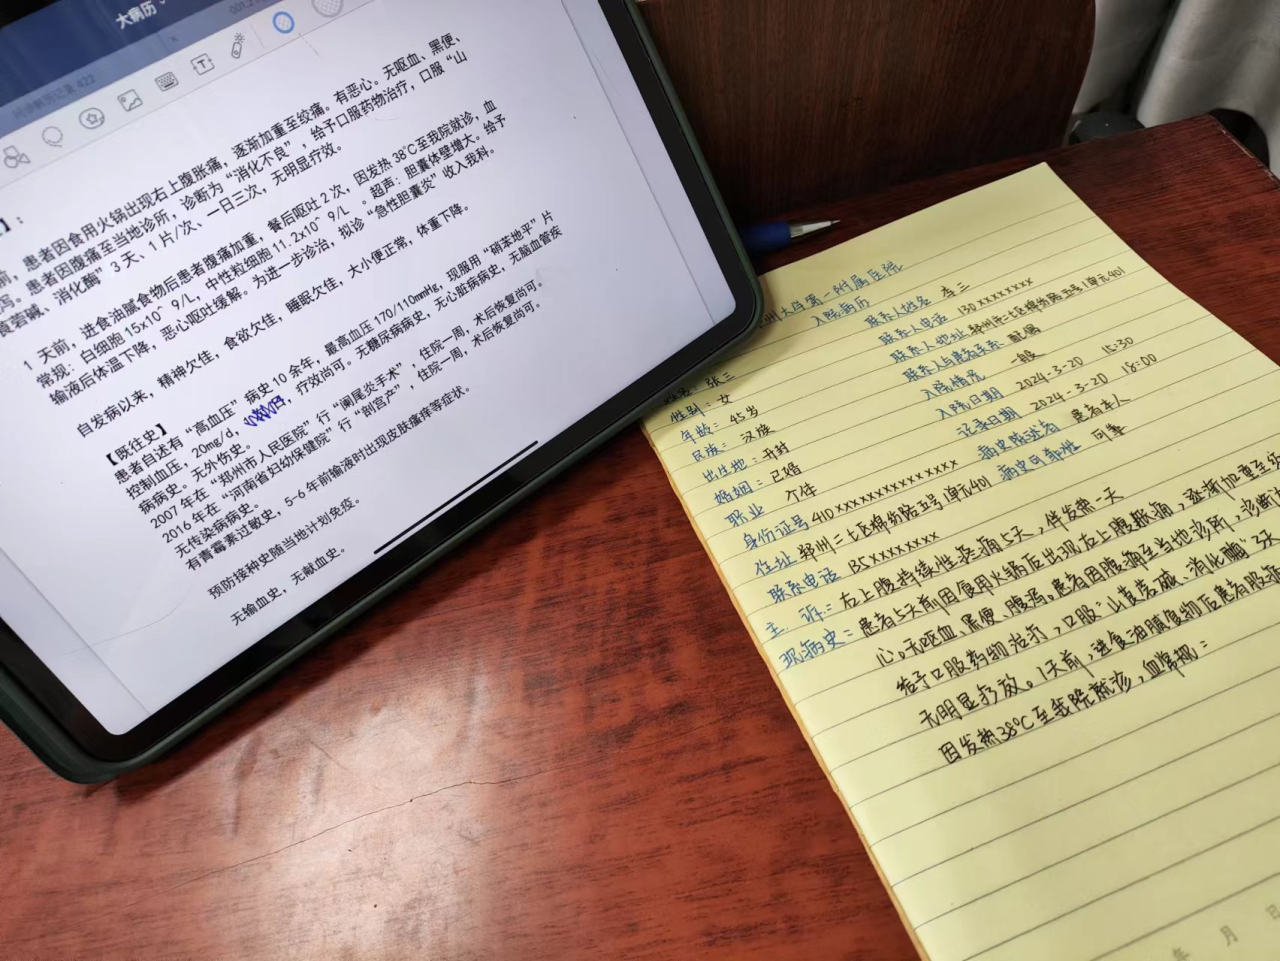 大病历
】：
前，患者因食用火锅出现右上腹胀痛，逐渐加重至绞痛。有恶心。无呕血、黑便、
泻。患者因腹痛至当地诊所，诊断为“消化不良”，给予口服药物治疗，口服“山
莨菪碱、消化酶”3天、1片/次、一日三次，无明显疗效。
1天前，进食油腻食物后患者腹痛加重，餐后呕吐2次，因发热38℃至我院就诊，血
常规：白细胞15x10^9/L，中性粒细胞11.2x10^9/L。超声：胆囊体壁增大。给予
输液后体温下降，恶心呕吐缓解。为进一步诊治，拟诊“急性胆囊炎”收入我科。
自发病以来，精神欠佳，食欲欠佳，睡眠欠佳，大小便正常，体重下降。
【既往史】
患者自述有“高血压”病史10余年，最高血压170/110mmHg，现服用“硝苯地平”片
控制血压，20mg/d，疗效尚可。无糖尿病病史，无心脏病病史，无脑血管疾
病病史。无外伤史。
2007年在“郑州市人民医院”行“阑尾炎手术”，住院一周，术后恢复尚可。
2016年在“河南省妇幼保健院”行“剖宫产”，住院一周，术后恢复尚可。
无传染病病史。
有青霉素过敏史，5-6年前输液时出现皮肤瘙痒等症状。
预防接种史随当地计划免疫。
无输血史，无献血史。
州大学第一附属医院
入院病历
姓名：张三 联系人姓名 李三
性别：女 联系人电话 130xxxxxxxx
年龄：45岁 联系人地址 郑州市二七区棉纺路五号1单元401
民族：汉族 联系人与患者关系 配偶
出生地：开封 入院情况 一般
婚姻：已婚 入院日期 2024-3-20 15:30
职业 个体 记录日期 2024-3-20 18:00
身份证号 410xxxxxxxxxxxxxxx 病史陈述者 患者本人
住址 郑州二七区棉纺路五号1单元401 病史可靠性 可靠
联系电话 135xxxxxxxx
主诉：右上腹持续性疼痛5天，伴发热一天
现病史：患者5天前因食用火锅后出现右上腹胀痛，逐渐加重至
心。无呕血、黑便、腹泻。患者因腹痛至当地诊所，诊断
给予口服药物治疗，口服“山莨菪碱、消化酶”3天
无明显疗效。1天前，进食油腻食物后患者腹痛
因发热38℃至我院就诊，血常规：
年 月 日